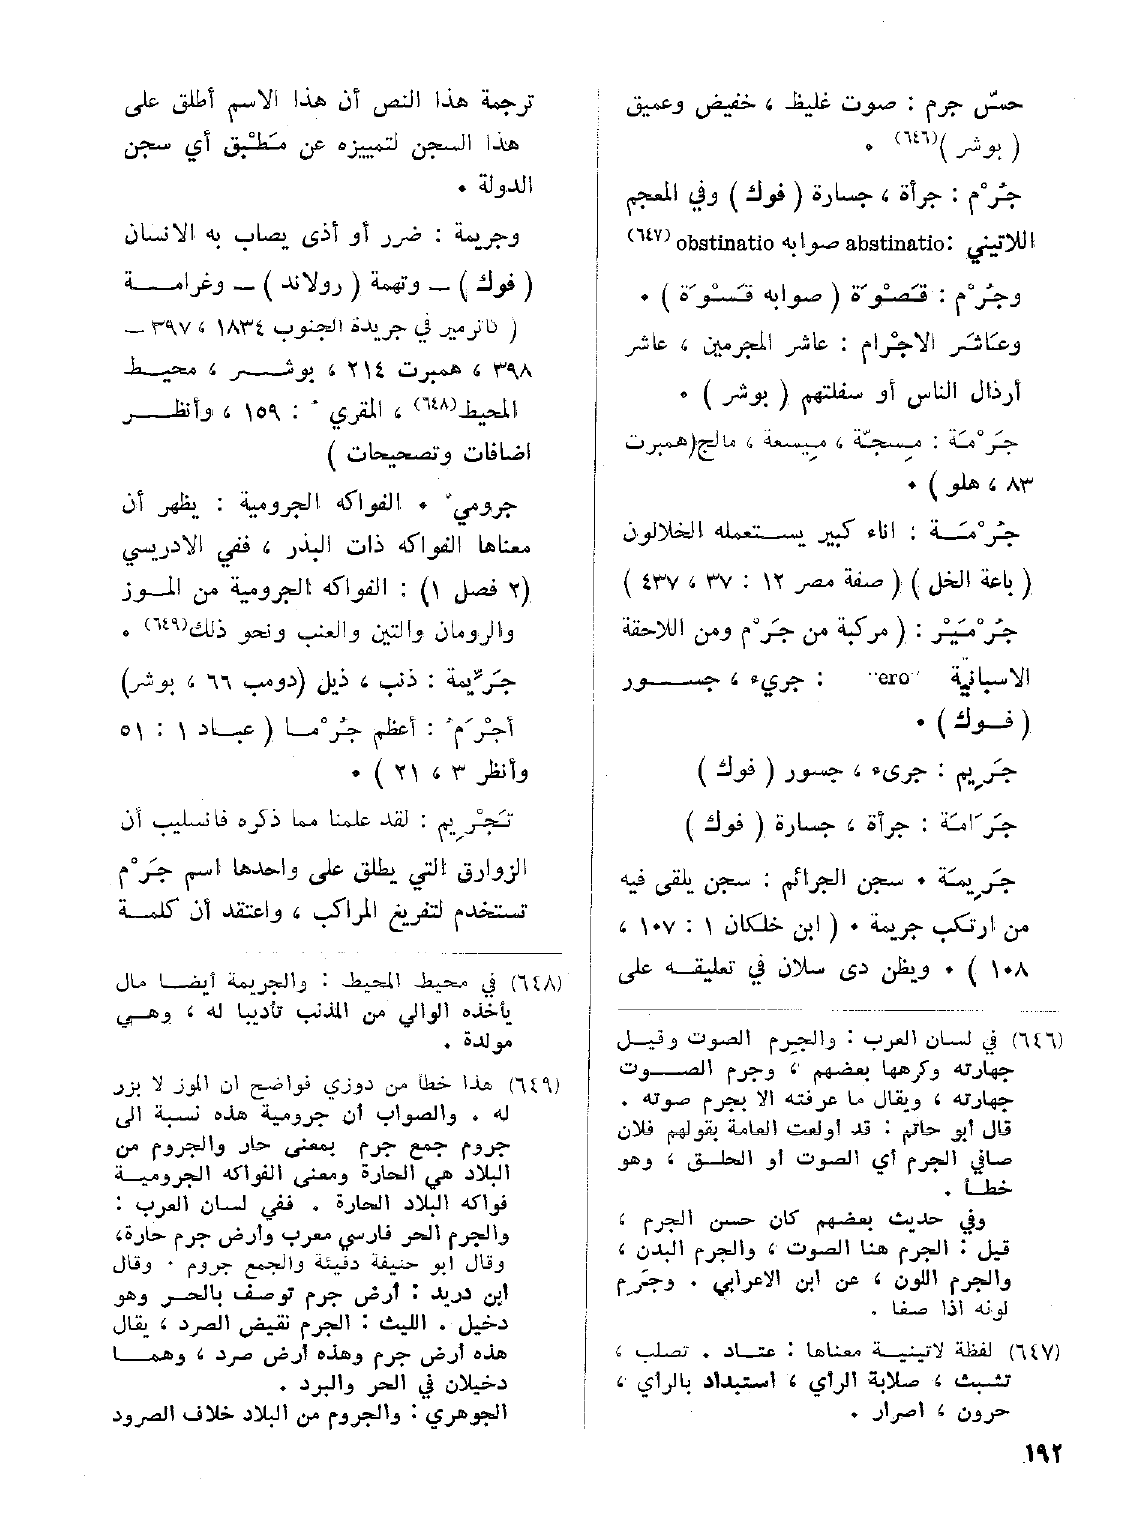 حسّ جرم : صوت غليظ ، خفيض وعميق
( بوشر )(٦٤٦) •
جُرْم : جرأة ، جسارة ( فوك ) وفي المعجم
اللاتيني : abstinatio صوابه obstinatio (٦٤٧)
وجُرْم : قَصْوَة ( صوابه قَسْوَة ) •
وعَاشَر الاجْرام : عاشر المجرمين ، عاشر
أرذال الناس أو سفلتهم ( بوشر ) •
جَرْمَة : مِسجّة ، مِيسعة ، مالج(همبرت
٨٣ ، هلو ) •
جُرْمَة : اناء كبير يستعمله الخلالون
( باعة الخل ) ( صفة مصر ١٢ : ٣٧ ، ٤٣٧ )
جُرْمَيْر : ( مركبة من جَرْم ومن اللاحقة
الاسبانية "ero" : جريء ، جسور
( فوك ) •
جَرِيم : جرىء ، جسور ( فوك )
جَرَامَة : جرأة ، جسارة ( فوك )
جَرِيمَة • سجن الجرائم : سجن يلقى فيه
من ارتكب جريمة • ( ابن خلكان ١ : ١٠٧ ،
١٠٨ ) • ويظن دى سلان في تعليقه على
(٦٤٦) في لسان العرب : والجِرم الصوت وقيل
جهارته وكرهها بعضهم ، وجرم الصوت
جهارته ، ويقال ما عرفته الا بجرم صوته .
قال أبو حاتم : قد أولعت العامة بقولهم فلان
صافي الجرم أي الصوت أو الحلق ، وهو
خطأ .
وفي حديث بعضهم كان حسن الجرم ،
قيل : الجرم هنا الصوت ، والجرم البدن ،
والجرم اللون ، عن ابن الاعرابي . وجَرِم
لونه اذا صفا .
(٦٤٧) لفظة لاتينية معناها : عناد . تصلب ،
تشبث ، صلابة الرأي ، استبداد بالرأي ،
حرون ، اصرار .
ترجمة هذا النص أن هذا الاسم أطلق على
هذا السجن لتمييزه عن مَطْبق أي سجن
الدولة •
وجريمة : ضرر أو أذى يصاب به الانسان
( فوك ) — وتهمة ( رولاند ) — وغرامة
( كاترمير في جريدة الجنوب ١٨٣٤ ، ٣٩٧ —
٣٩٨ ، همبرت ٢١٤ ، بوشر ، محيط
المحيط(٦٤٨) ، المقري ٢ : ١٥٩ ، وأنظر
اضافات وتصحيحات )
جرومي • الفواكه الجرومية : يظهر أن
معناها الفواكه ذات البذر ، ففي الادريسي
(٢ فصل ١) : الفواكه الجرومية من الموز
والرومان والتين والعنب ونحو ذلك(٦٤٩) •
جَرِّيمة : ذنب ، ذيل (دومب ٦٦ ، بوشر)
أجْرَمُ : أعظم جُرْما ( عباد ١ : ٥١
وأنظر ٣ ، ٢١ ) •
تَجْرِيم : لقد علمنا مما ذكره فانسليب أن
الزوارق التي يطلق على واحدها اسم جَرْم
تستخدم لتفريغ المراكب ، واعتقد أن كلمة
(٦٤٨) في محيط المحيط : والجريمة أيضا مال
يأخذه الوالي من المذنب تأديبا له ، وهي
مولدة .
(٦٤٩) هذا خطأ من دوزي فواضح ان الموز لا بزر
له . والصواب أن جرومية هذه نسبة الى
جروم جمع جرم بمعنى حار والجروم من
البلاد هي الحارة ومعنى الفواكه الجرومية
فواكه البلاد الحارة . ففي لسان العرب :
والجرم الحر فارسي معرب وأرض جرم حارة،
وقال ابو حنيفة دفيئة والجمع جروم . وقال
ابن دريد : أرض جرم توصف بالحر وهو
دخيل . الليث : الجرم نقيض الصرد ، يقال
هذه أرض جرم وهذه أرض صرد ، وهما
دخيلان في الحر والبرد .
الجوهري : والجروم من البلاد خلاف الصرود
١٩٢